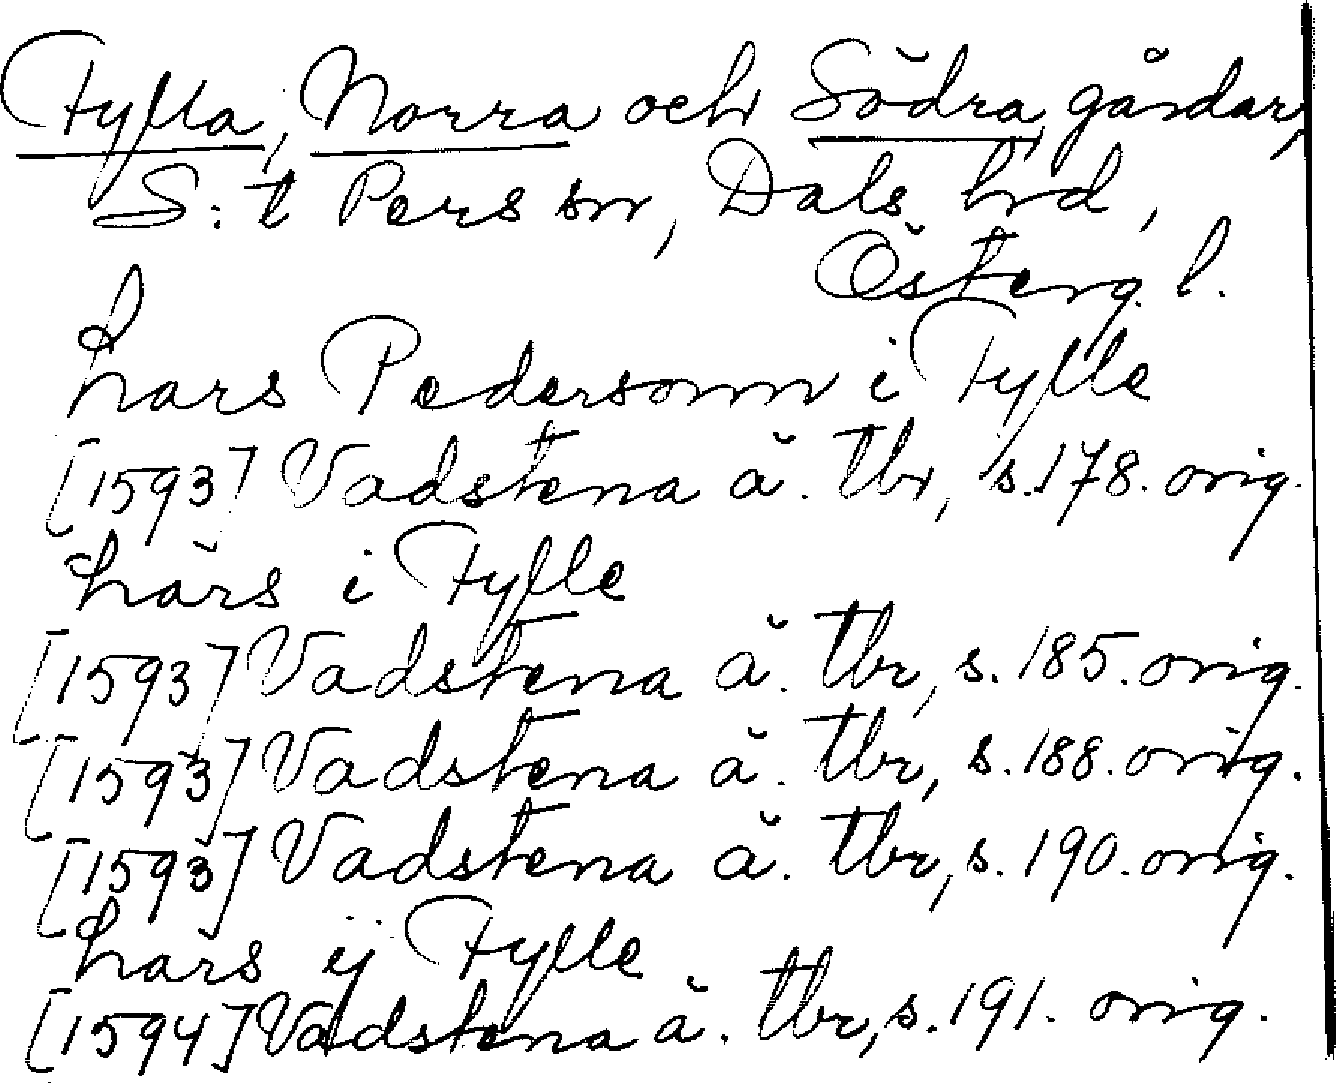 Fylla, Norra och Södra, gårdar,
S:t Pers sn, Dals hrd,
Österg. l.
Lars Pedersonn i Fylle
[1593] Vadstena ä. tbr, s. 178. orig.
Lärs i Fylle
[1593] Vadstena ä. tbr, s. 185. orig.
[1593] Vadstena ä. tbr, s. 188. orig.
[1593] Vadstena ä. tbr, s. 190. orig.
Lars ij Fylle
[1594] Vadstena ä. tbr, s. 191. orig.